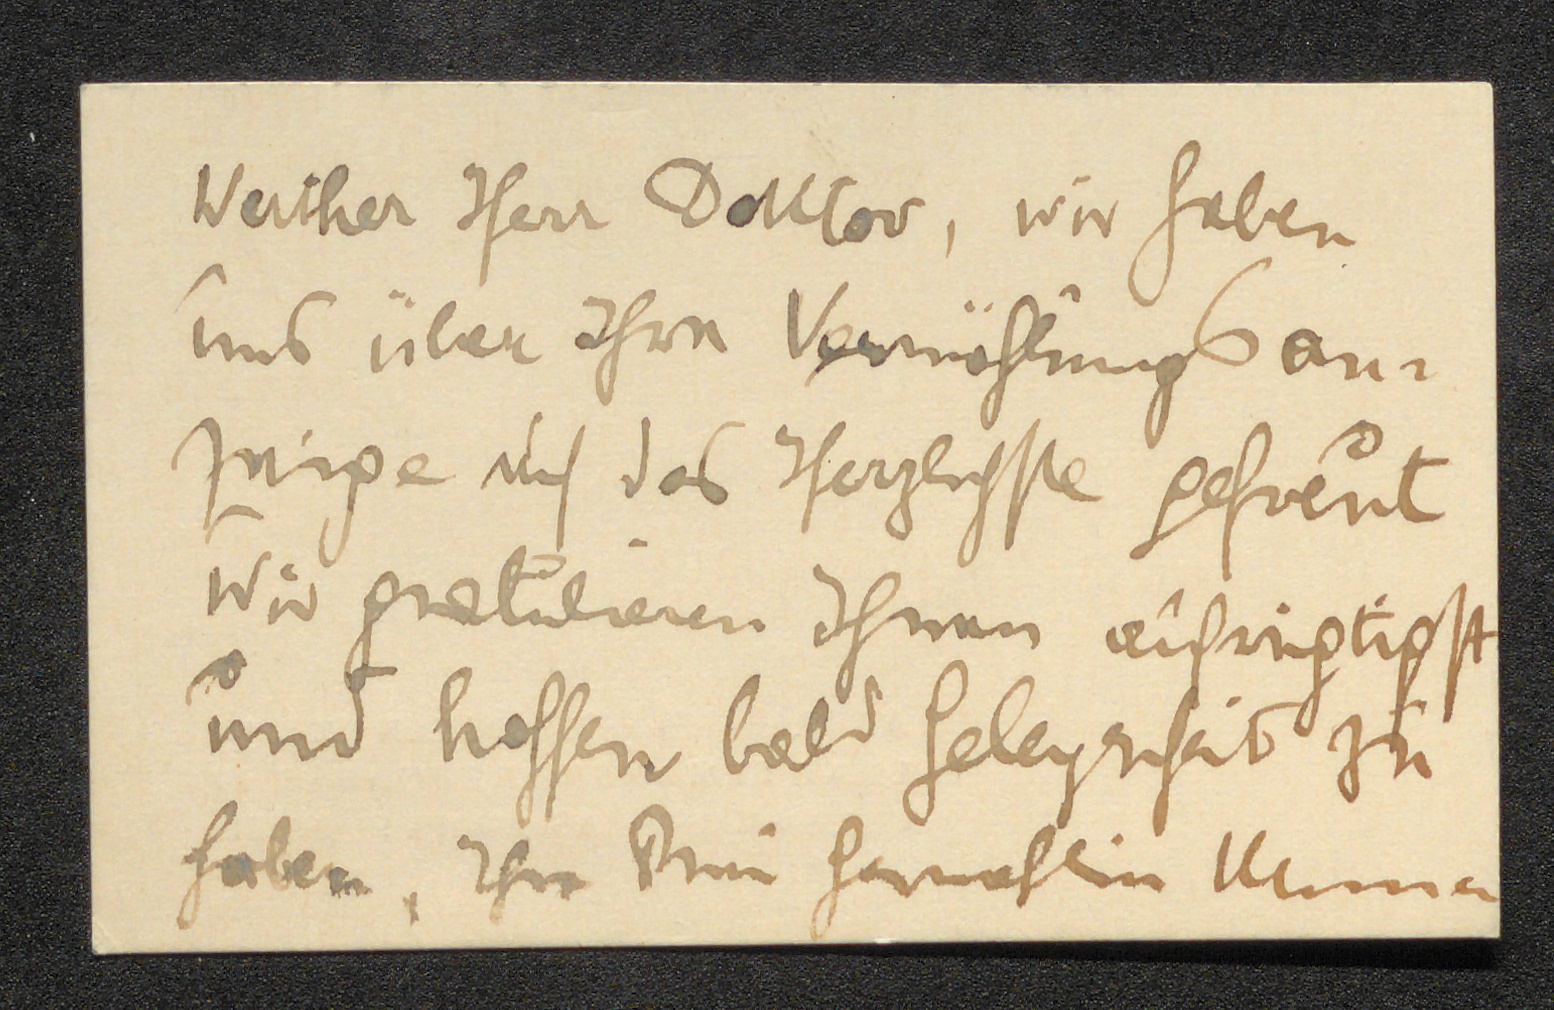 Werther Herr Doktor, wir haben
uns über Ihre Vermählungsan-
zeige auf das Herzlichste gefreut
Wir gratulieren Ihnen aufrichtigst
und hoffen bald Gelegenheit zu
haben, Ihre Frau Gemahlin kennen